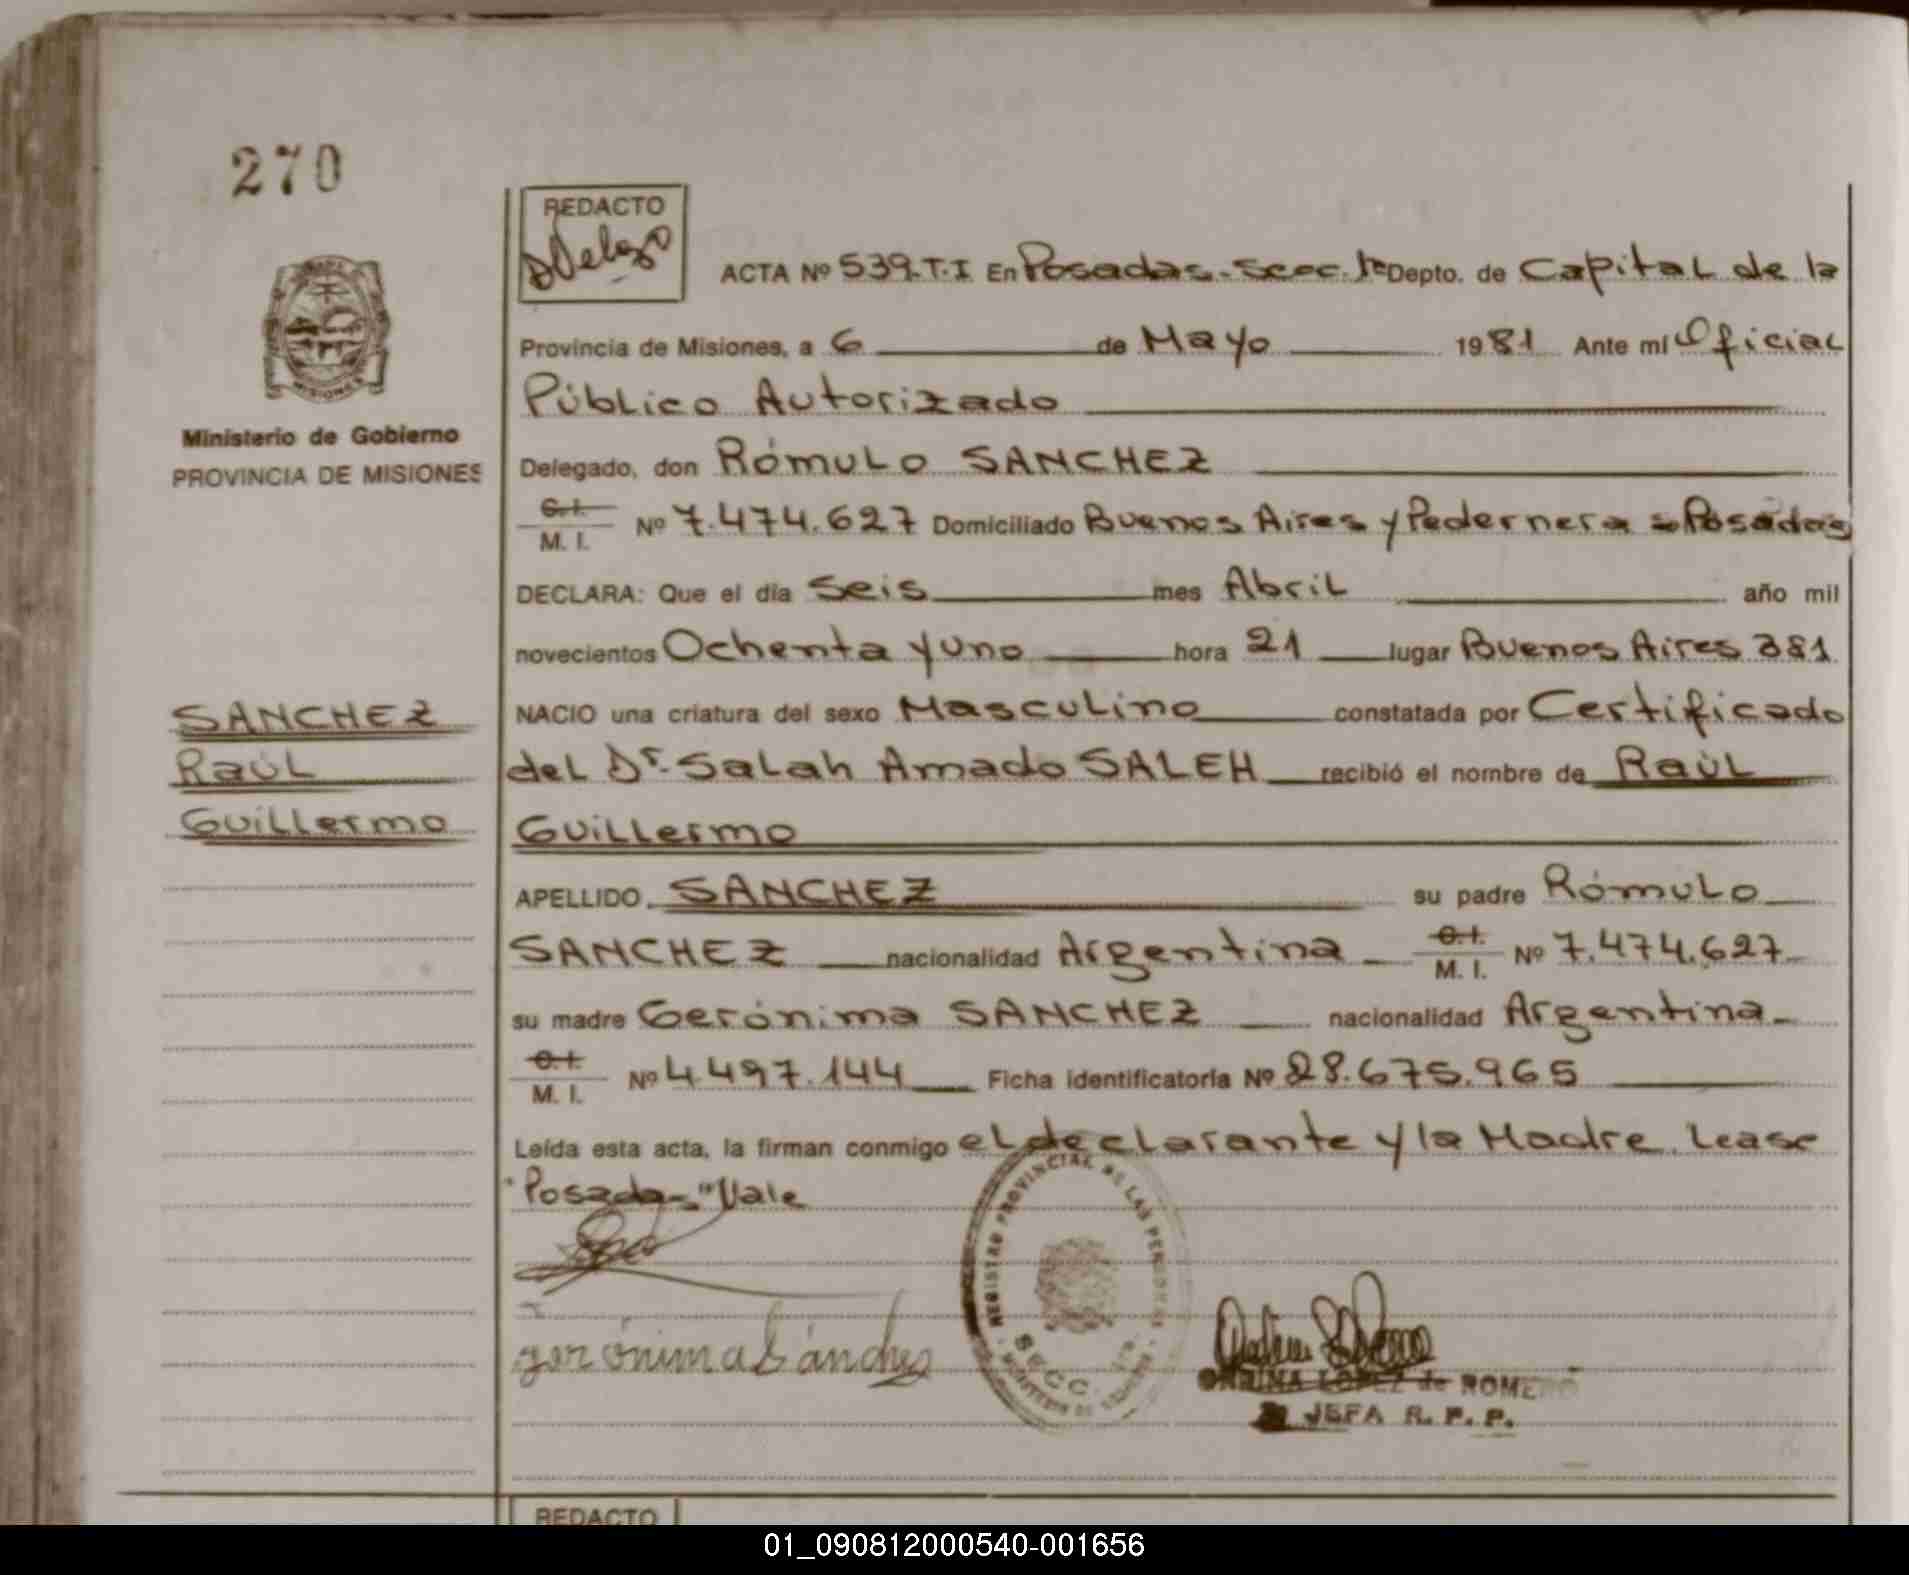 270
REDACTO
ACTA Nº 539.T.I En Posadas-Secc. 1ª Depto. de Capital de la
Provincia de Misiones, a 6 de Mayo 1981 Ante mí Oficial
Público Autorizado
Ministerio de Gobierno
PROVINCIA DE MISIONES
MISIONES
Delegado, don Rómulo SANCHEZ
C.I.
M. I. Nº 7.474.627 Domiciliado Buenos Aires y Pedernera - Posadas
DECLARA: Que el día Seis mes Abril año mil
novecientos Ochenta y uno hora 21 lugar Buenos Aires 381
NACIO una criatura del sexo Masculino constatada por Certificado
del Dr. Salah Amado SALEH recibió el nombre de Raúl
Guillermo
SANCHEZ
Raúl
Guillermo
APELLIDO SANCHEZ su padre Rómulo
SANCHEZ nacionalidad Argentina C.I. M. I. Nº 7.474.627
su madre Gerónima SANCHEZ nacionalidad Argentina
C.I.
M. I. Nº 4.497.144 Ficha identificatoria Nº 28.675.965
Leída esta acta, la firman conmigo el declarante y la Madre. Lease
"Posadas" Vale
gerónima Sánchez
REGISTRO PROVINCIAL DE LAS PERSONAS
SECC. 1ra.
ONDINA LOPEZ de ROMERO
JEFA R. P. P.
REDACTO
01_090812000540-001656